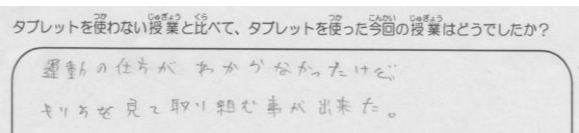 タブレットを使わない授業と比べて、タブレットを使った今回の授業はどうでしたか?
運動の仕方が わからなかったけど、
やり方を見て取り組む事が出来た。